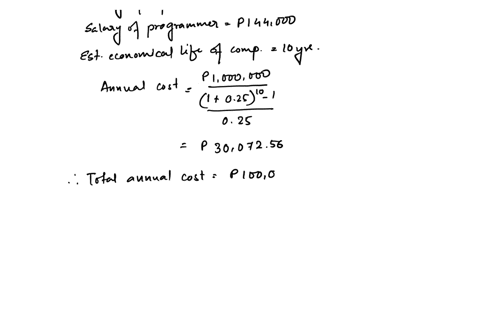 Salary of programmer = P144,000
Est. economical life of comp. = 10 yrs.
Annual cost = P1,000,000 / (((1 + 0.25)^10 - 1) / 0.25)
= P 30,072.56
∴ Total annual cost = P100,0